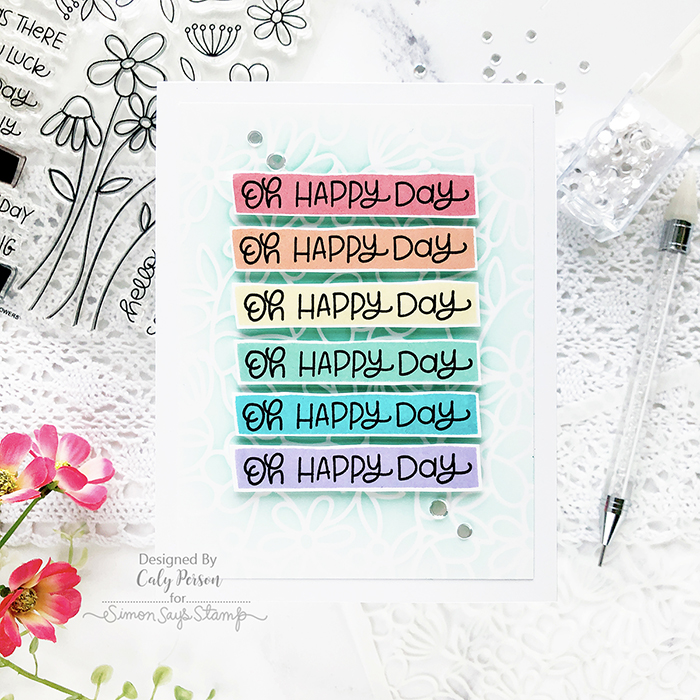 AS THERE
LUCK
Day
hello
Oh HAPPY Day
Oh HAPPY Day
Oh HAPPY Day
Oh HAPPY Day
Oh HAPPY Day
Oh HAPPY Day
Designed By
Caly Person
for
Simon Says Stamp